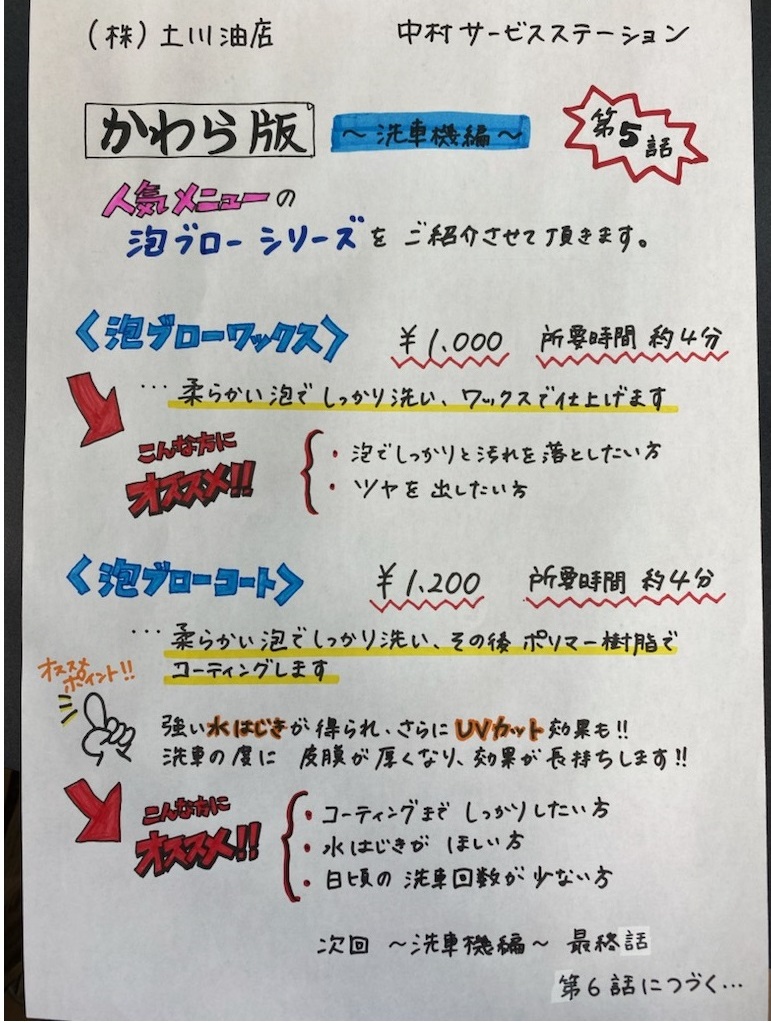 (株)土川油店　中村サービスステーション
かわら版　～洗車機編～　第5話
人気メニューの
泡ブローシリーズをご紹介させて頂きます。
〈泡ブローワックス〉　¥1,000　所要時間 約4分
…柔らかい泡でしっかり洗い、ワックスで仕上げます
こんな方に
オススメ!!
・泡でしっかりと汚れを落としたい方
・ツヤを出したい方
〈泡ブローコート〉　¥1,200　所要時間 約4分
…柔らかい泡でしっかり洗い、その後ポリマー樹脂で
コーティングします
オススメ
ポイント!!
強い水はじきが得られ、さらにUVカット効果も!!
洗車の度に 皮膜が厚くなり、効果が長持ちします!!
こんな方に
オススメ!!
・コーティングまで しっかりしたい方
・水はじきが ほしい方
・日頃の 洗車回数が 少ない方
次回 ～洗車機編～ 最終話
第6話につづく…